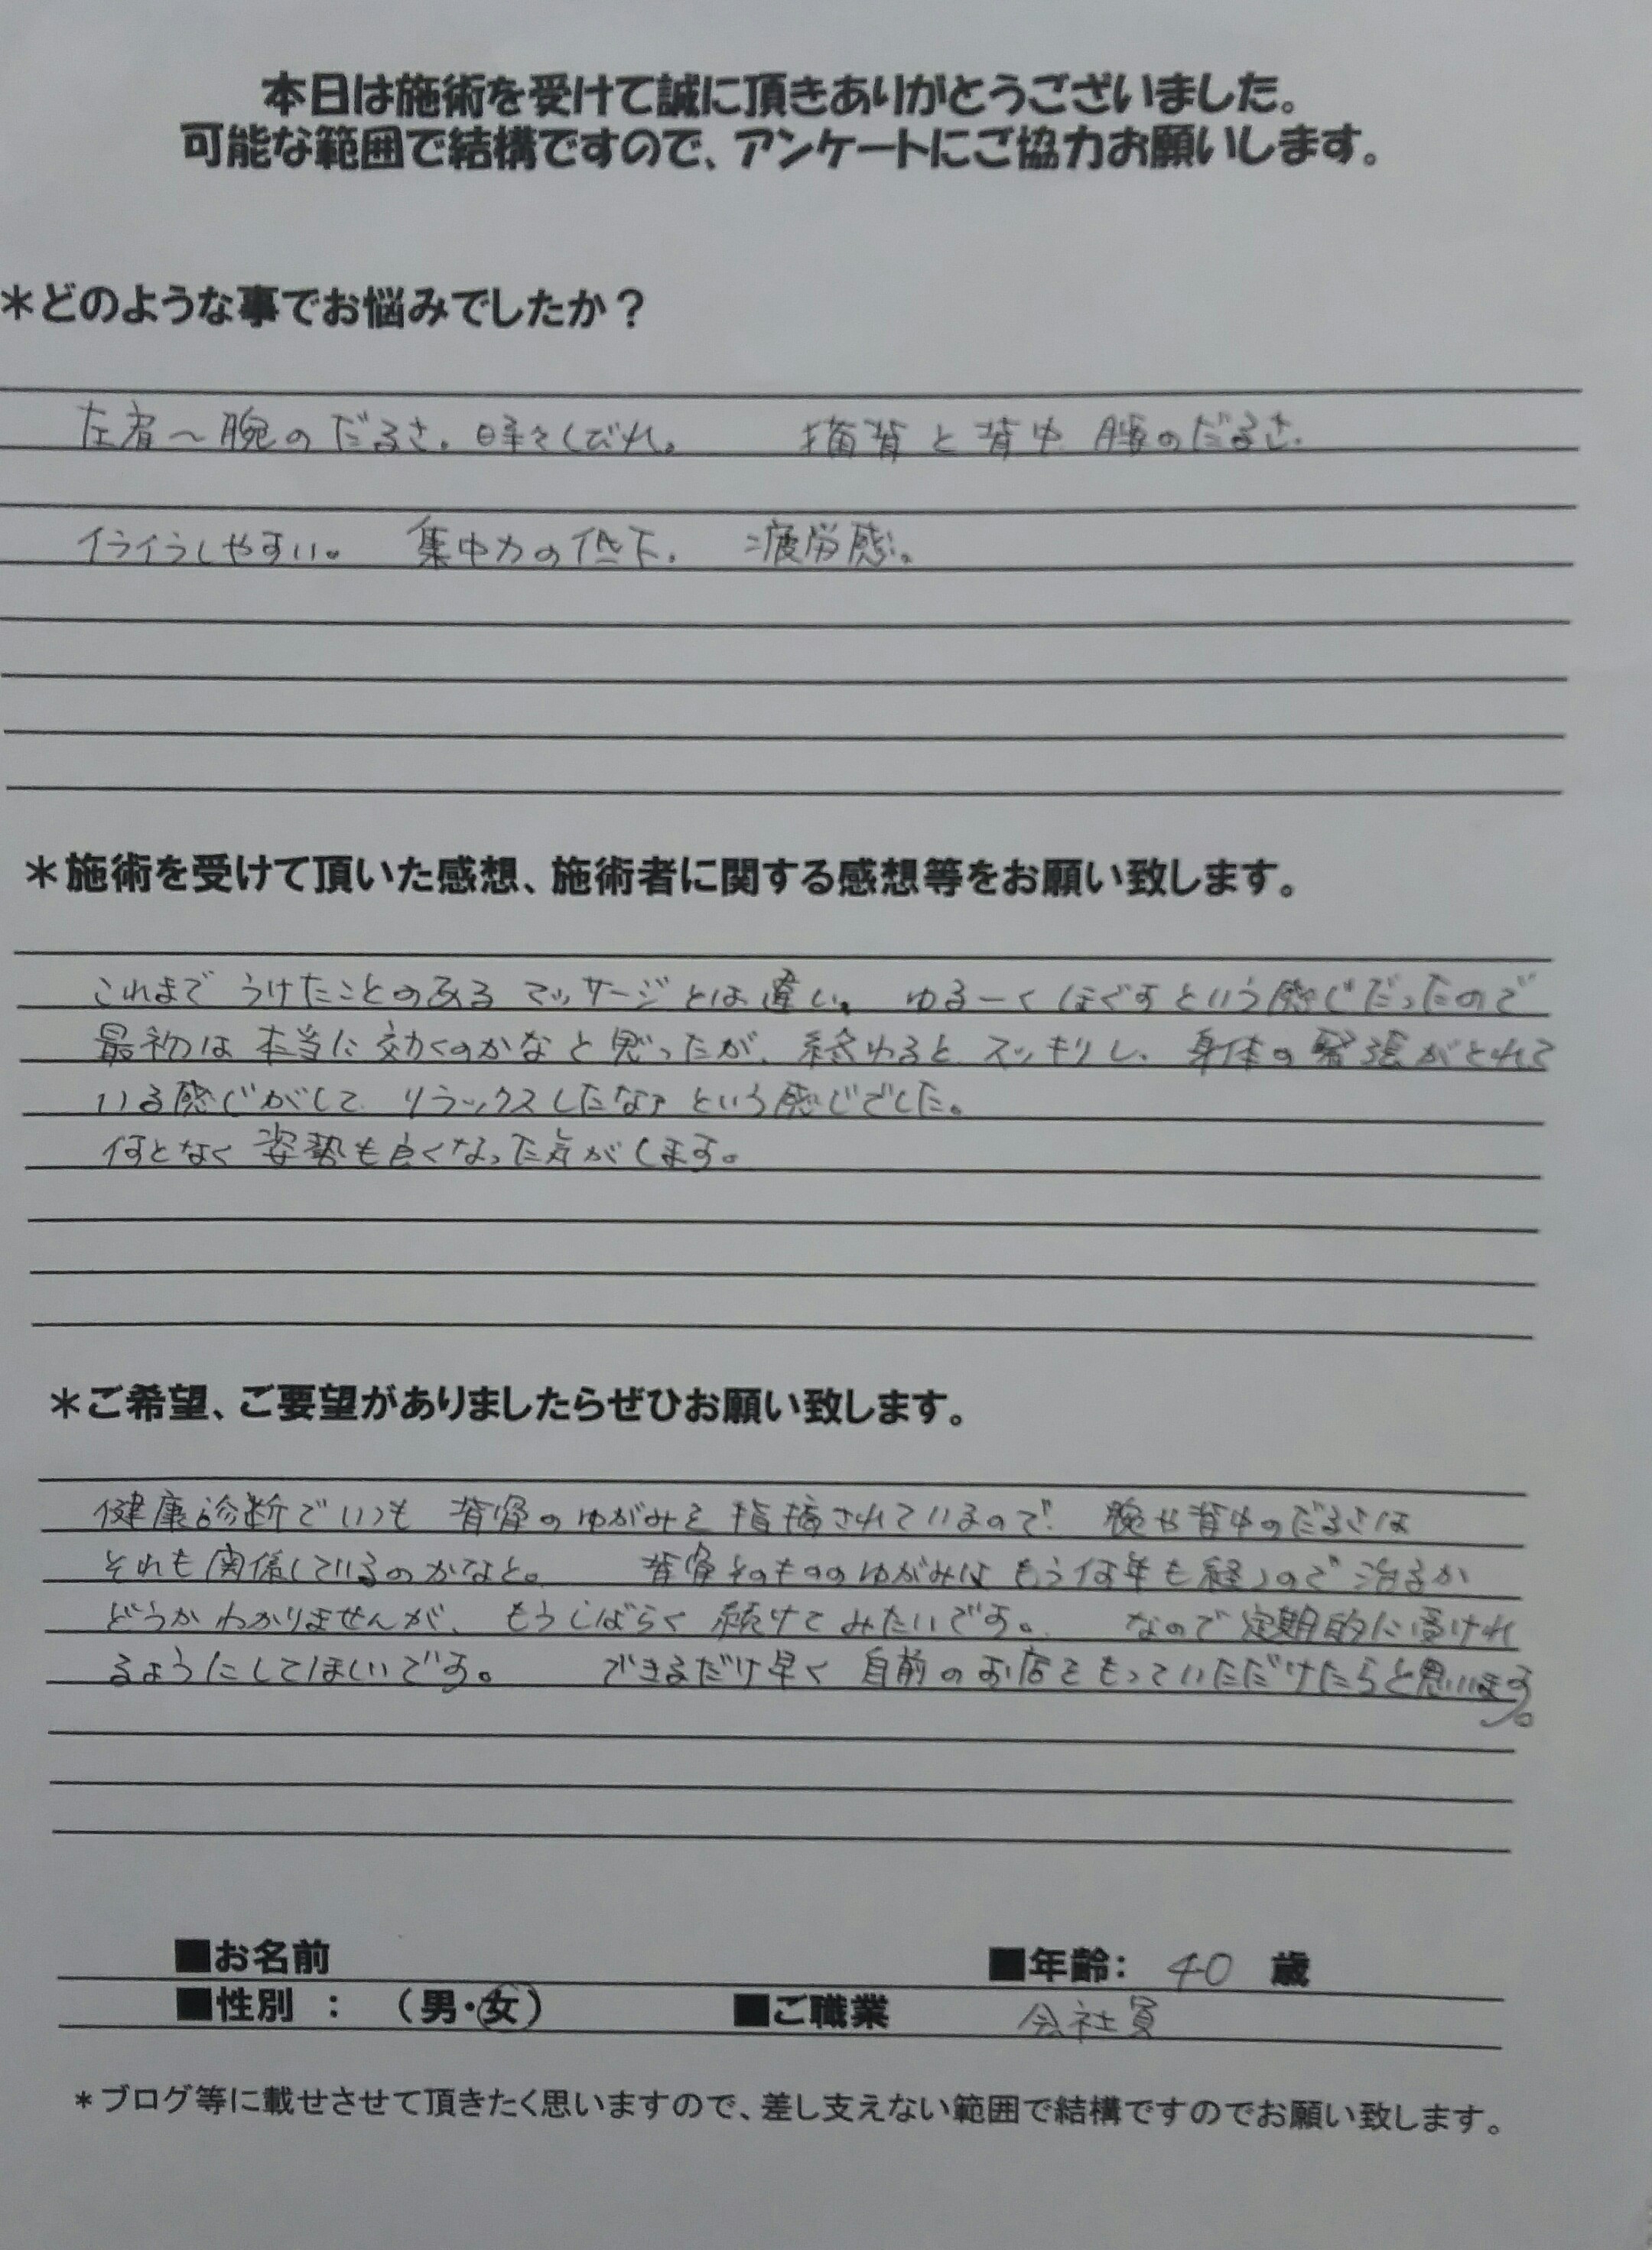 本日は施術を受けて誠に頂きありがとうございました。
可能な範囲で結構ですので、アンケートにご協力お願いします。
＊どのような事でお悩みでしたか？
左肩〜腕のだるさ。時々しびれ。　猫背と背中 腰のだるさ。
イライラしやすい。　集中力の低下。　疲労感。
＊施術を受けて頂いた感想、施術者に関する感想等をお願い致します。
これまで うけたことのある マッサージとは違い、 ゆるーく ほぐすという感じだったので
最初は 本当に 効くのかなと思ったが、終わると スッキリし、身体の緊張がとれて
いる感じがして リラックスしたなァ という感じでした。
何となく 姿勢も良くなった気がします。
＊ご希望、ご要望がありましたらぜひお願い致します。
健康診断でいつも 背骨のゆがみを指摘されているので、 腕や背中のだるさは
それも関係しているのかなと。　背骨そのもののゆがみは もう何年も経つので 治るか
どうかわかりませんが、 もうしばらく 続けてみたいです。　なので定期的に受けれ
るようにしてほしいです。　できるだけ早く 自前のお店をもっていただけたらと思います。
■お名前　■年齢： 40 歳
■性別 ：（男・女）　■ご職業　会社員
＊ブログ等に載せさせて頂きたく思いますので、差し支えない範囲で結構ですのでお願い致します。